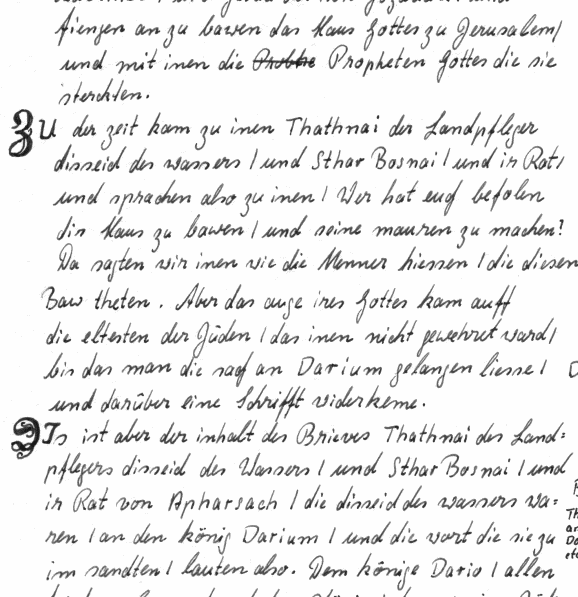 fiengen an zu bawen das Haus Gottes zu Jerusalem/
und mit inen die Propheten Gottes die sie
sterckten.
ZU der zeit kam zu inen Thathnai der Landpfleger
disseid des wassers / und Sthar Bosnai / und ir Rat/
und sprachen also zu inen / Wer hat euch befolen
dis Haus zu bawen / und seine mauren zu machen?
Da sagten wir inen wie die Menner hiessen / die diesen
Baw theten. Aber das auge ires Gottes kam auff
die eltesten der Jüden / das inen nicht gewehret ward/
bis das man die sach an Darium gelangen liesse /
und darüber eine Schrifft widerkeme.
DIs ist aber der inhalt des Brieves Thathnai des Land=
pflegers disseid des Wassers / und Sthar Bosnai / und
ir Rat von Apharsach / die disseid des wassers wa=
ren / an den könig Darium / und die wort die sie zu
im sandten / lauten also. Dem könige Dario / allen